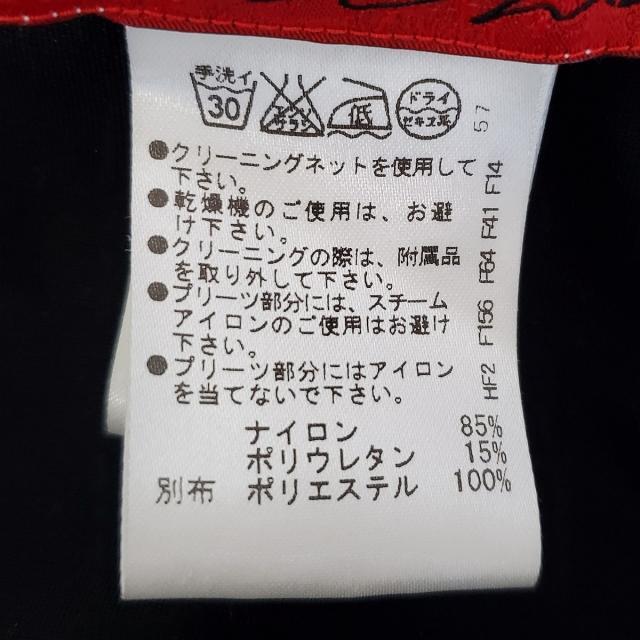 手洗イ
30
エンソ
サラシ
低
ドライ
セキユ系
57
●クリーニングネットを使用して
下さい。
●乾燥機のご使用は、お避
け下さい。
●クリーニングの際は、附属品
を取り外して下さい。
●プリーツ部分には、スチーム
アイロンのご使用はお避け
下さい。
●プリーツ部分にはアイロン
を当てないで下さい。
ナイロン 85%
ポリウレタン 15%
別布 ポリエステル 100%
HF2 F156 F64 F41 F14